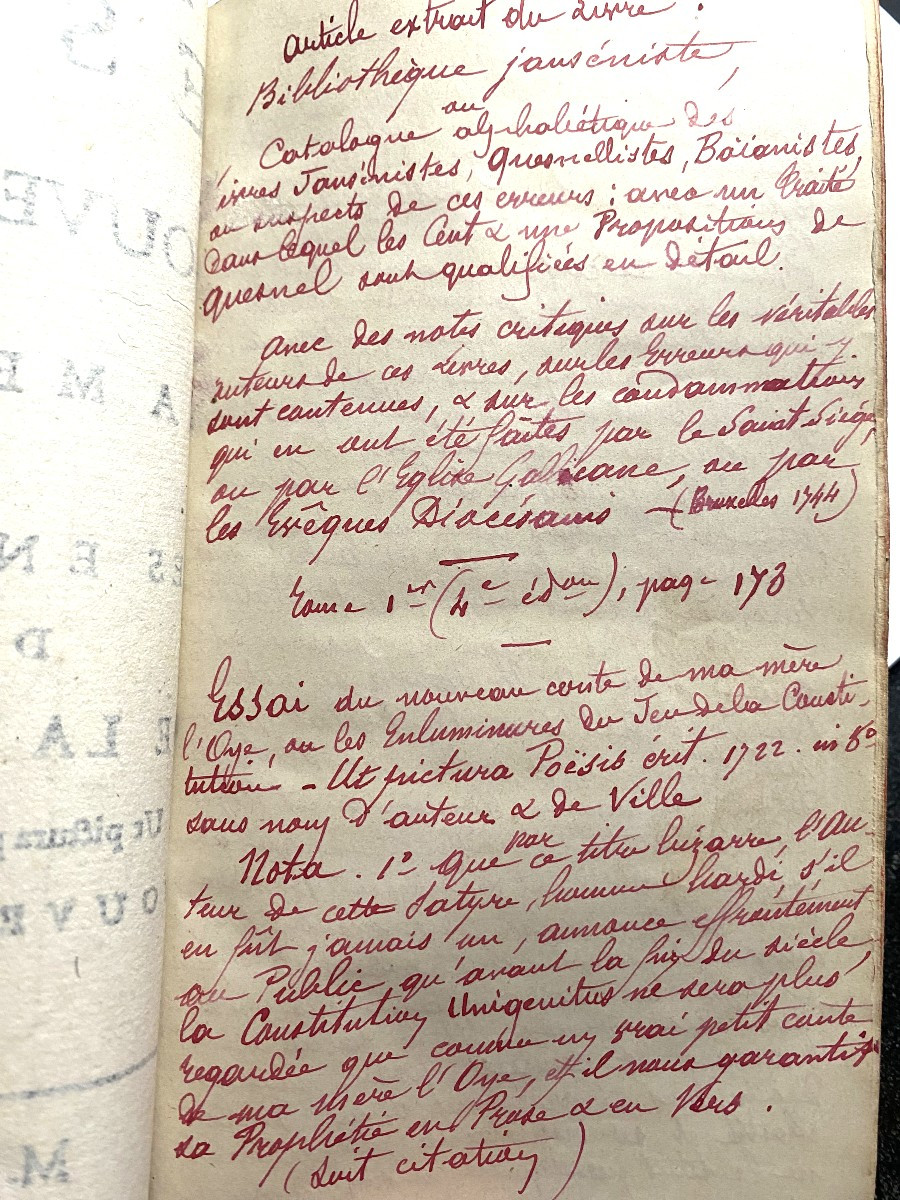 article extrait du Livre :
Bibliothèque janséniste,
ou
Catalogue alphabétique des
livres Jansénistes, Quesnellistes, Baïanistes,
ou suspects de ces erreurs : avec un traité
dans lequel les Cent & une Propositions de
Quesnel sont qualifiées en détail.
avec des notes critiques sur les véritables
auteurs de ces Livres, sur les Erreurs qui y
sont contenues, & sur les condammations
qui en ont été faites par le Saint Siège,
ou par l'Eglise Gallicane, ou par
les Evêques Diocésains — (Bruxelles 1744)
Tome 1er (4e édon), page 173
Essai du nouveau conte de ma mère
l'Oye, ou les Enluminures du Jeu de la Consti-
tution. - Ut pictura Poësis erit. 1722. in 8o
sans nom d'auteur & de Ville
Nota. 1o Que par ce titre bizarre, l'Au-
teur de cette Satyre, homme hardi s'il
en fût jamais un, annonce effrontément
au Public, qu'avant la fin du siècle
la Constitution Unigenitus ne sera plus
regardée que comme un vrai petit conte
de ma Mère l'Oye, et il nous garantit
sa Prophétie en Prose & en Vers.
(suit citation)
OUVE
AME
S EN
D
E LA
Ut pictura
OUVE
M.